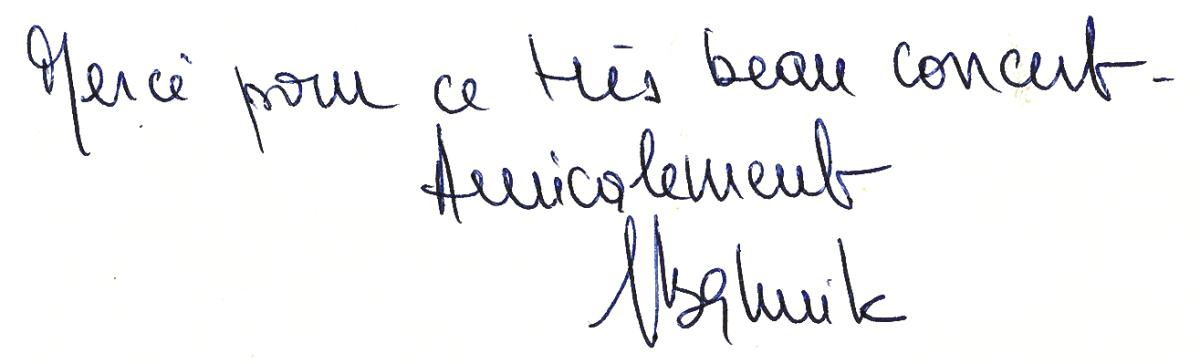 Merci pour ce très beau concert -
Amicalement